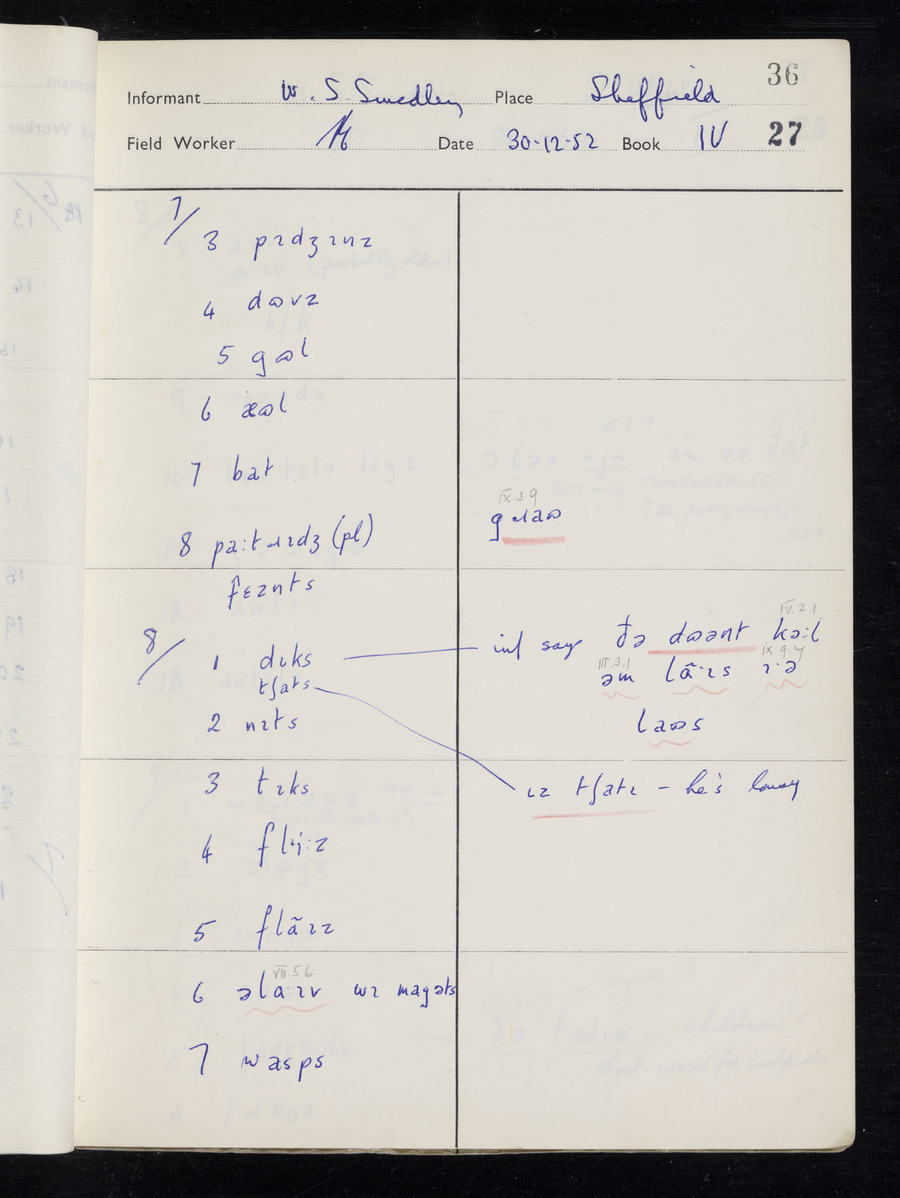 36
Informant W. S. Smedley Place Sheffield
Field Worker Date 30-12-52 Book IV 27
7/ 3 pɪdʒɪnz
4 dɷvz
5 gɷl
6 æɷl
7 bat
IX.3.9
8 pa:tɹɪdʒ (pl) gɹaɷ
fɛznts
IV.2.1
8/ 1 dɪks inf says ðə dɷənt kɔ:l
III.3.1 IX.9.4
tʃats əm lã·ɪs ɪ·ə
2 nɪts laɷs
3 tɪks ɪz tʃatɪ – he's lousy
4 flɪ̣:z
5 flãɪz
VII.5.6
6 əlaɪv wɪ magəts
7 wasps